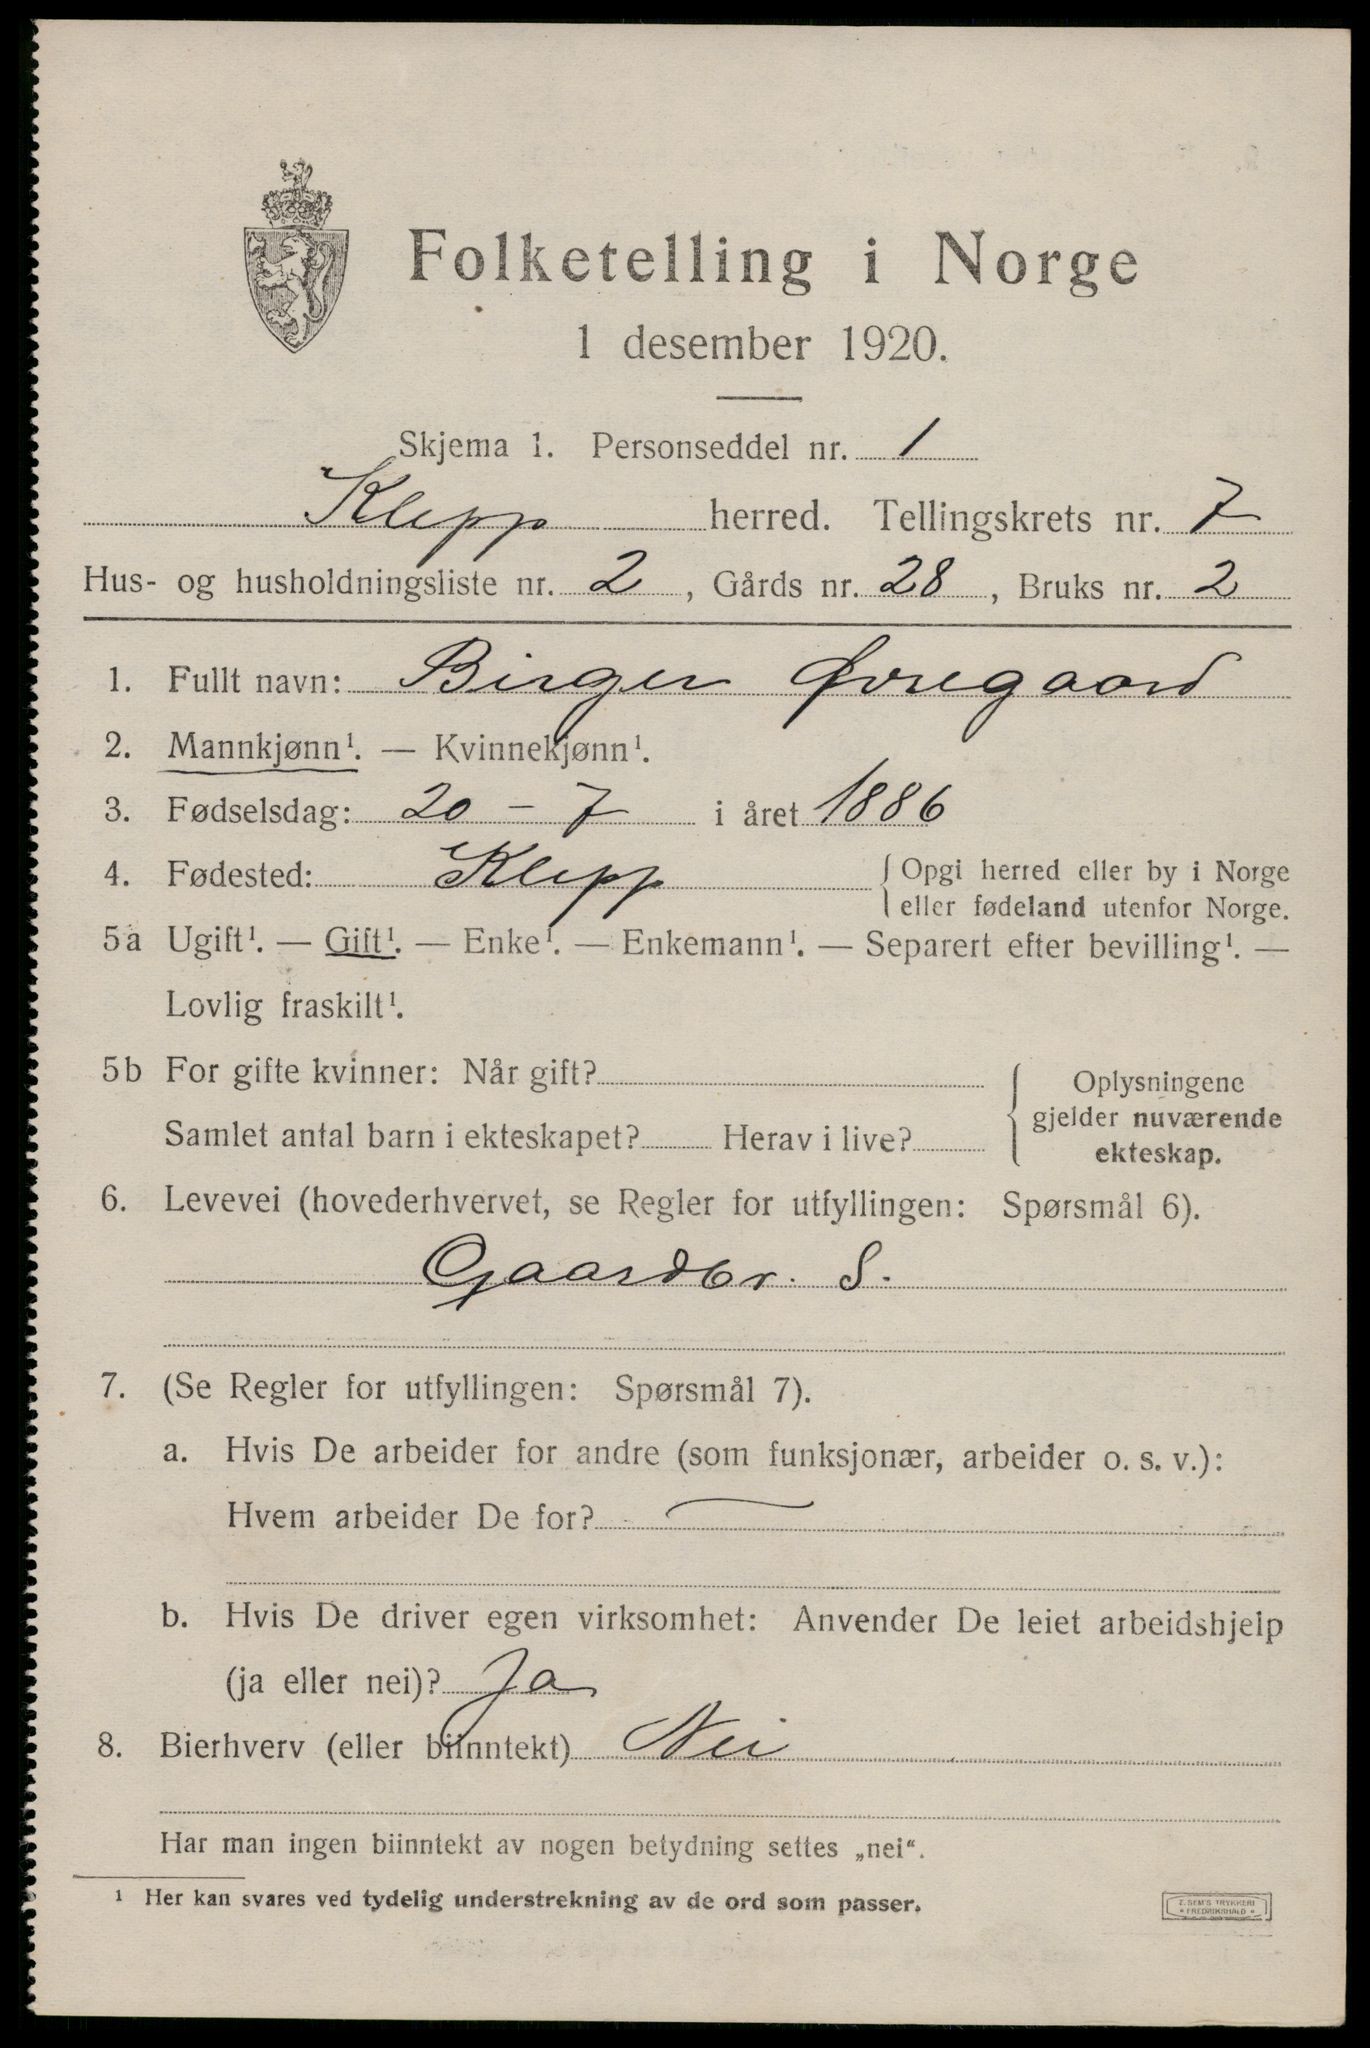 Folketelling i Norge
1 desember 1920.
Skjema 1. Personseddel nr. 1
Klepp herred. Tellingskrets nr. 7
Hus- og husholdningsliste nr. 2, Gårds nr. 28, Bruks nr. 2
1. Fullt navn: Birger Øvregaard
2. Mannkjønn¹. — Kvinnekjønn¹.
3. Fødselsdag: 20 - 7 i året 1886
4. Fødested: Klepp { Opgi herred eller by i Norge
eller fødeland utenfor Norge.
5a Ugift¹. — Gift¹. — Enke¹. — Enkemann¹. — Separert efter bevilling¹. —
Lovlig fraskilt¹.
5b For gifte kvinner: Når gift?
Samlet antal barn i ekteskapet? Herav i live?
Oplysningene
gjelder nuværende
ekteskap.
6. Levevei (hovederhvervet, se Regler for utfyllingen: Spørsmål 6).
Gaardbr. S.
7. (Se Regler for utfyllingen: Spørsmål 7).
a. Hvis De arbeider for andre (som funksjonær, arbeider o. s. v.):
Hvem arbeider De for? —
b. Hvis De driver egen virksomhet: Anvender De leiet arbeidshjelp
(ja eller nei)? Ja
8. Bierhverv (eller biinntekt) Nei
Har man ingen biinntekt av nogen betydning settes „nei“.
¹ Her kan svares ved tydelig understrekning av de ord som passer.
Z. SEM'S TRYKKERI
* FREDRIKSHALD *